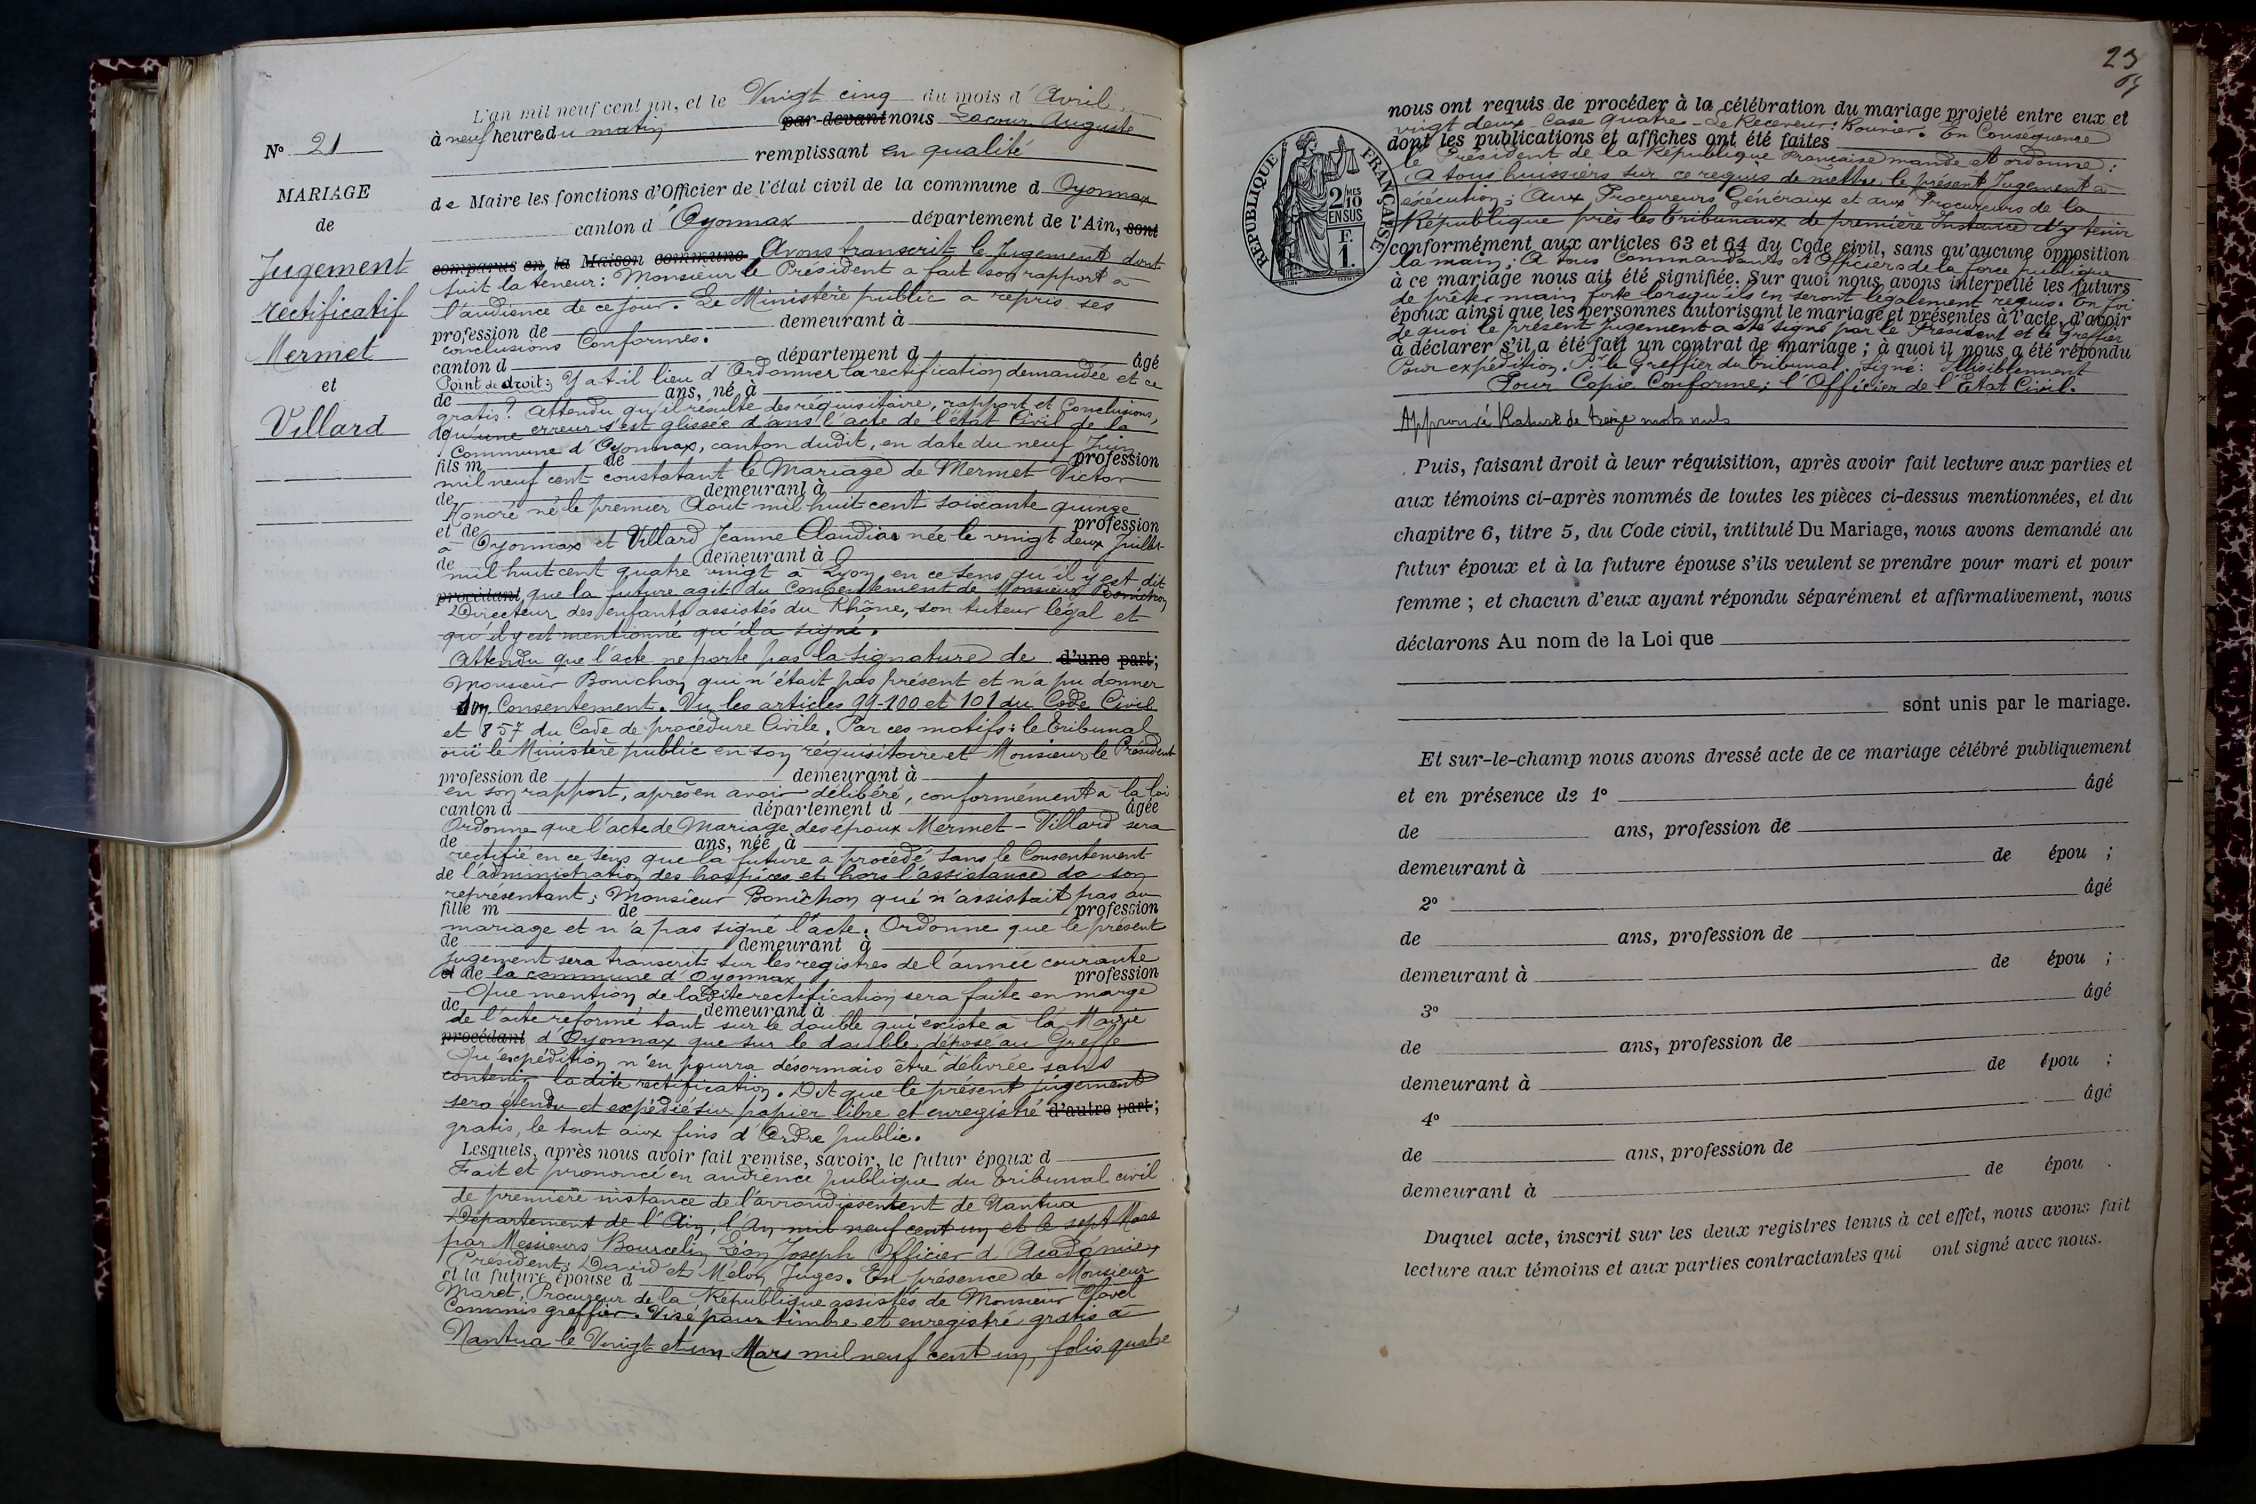 L'an mil neuf cent un, et le Vingt cinq du mois d'Avril
à neuf heures du matin par-devant nous Lacour Auguste
N° 21
remplissant en qualité
MARIAGE
de Maire les fonctions d'Officier de l'état civil de la commune d Oyonnax
de
canton d'Oyonnax département de l'Ain, sont
Jugement
comparus en la Maison commune Avons transcrit le Jugement dont
suit la teneur: Monsieur le Président a fait son rapport à
rectificatif
l'audience de ce jour. Le Ministère public a repris ses
profession de demeurant à
Mermet
conclusions Conformes.
canton d département d âgé
et
Point de droit: Y a t-il lieu d'Ordonner la rectification demandée et ce
de ans, né à
gratis? Attendu qu'il résulte des réquisitoire, rapport et Conclusions,
Villard
qu'une erreur s'est glissée dans l'acte de l'état Civil de la
Commune d'Oyonnax, canton dudit, en date du neuf Juin
fils m de profession
mil neuf cent constatant le Mariage de Mermet Victor
de demeurant à
Honoré né le premier Aout mil huit cent soixante quinze
et de profession
à Oyonnax et Villard Jeanne Claudia née le vingt deux Juillet
de demeurant à
mil huit cent quatre vingt à Lyon en ce sens qu'il y est dit
procédant que la future agit du Consentement de Monsieur Bonichon
Directeur des enfants assistés du Rhône, son tuteur légal et
qu'il y est mentionné qu'il a signé.
Attendu que l'acte ne porte pas la signature de d'une part;
Monsieur Bonichon qui n'était pas présent et n'a pu donner
son Consentement. Vu les articles 99-100 et 101 du Code Civil
et 857 du Code de procédure Civile. Par ces motifs: le Tribunal
ouï le Ministère public en son réquisitoire et Monsieur le Président
profession de demeurant à
en son rapport, après en avoir délibéré, conformément à la loi
canton d département d âgée
Ordonne que l'acte de Mariage des époux Mermet-Villard sera
de ans, née à
rectifié en ce sens que la future a procédé sans le Consentement
de l'administration des hospices et hors l'assistance de son
représentant; Monsieur Bonichon qui n'assistait pas au
fille m de profession
mariage et n'a pas signé l'acte. Ordonne que le présent
de demeurant à
jugement sera transcrit sur les registres de l'année courante
et de la commune d'Oyonnax profession
Que mention de la dite rectification sera faite en marge
de demeurant à
de l'acte reformé tant sur le double qui existe à la Mairie
procédant d'Oyonnax que sur le double déposé au Greffe
Qu'expédition n'en pourra désormais être délivrée sans
contenir la dite rectification. Dit que le présent jugement
sera étendu et expédié sur papier libre et enregistré d'autre part;
gratis, le tout aux fins d'Ordre public.
Lesquels, après nous avoir fait remise, savoir, le futur époux d
Fait et prononcé en audience publique du Tribunal civil
de première instance de l'arrondissement de Nantua
Département de l'Ain, l'An mil neuf cent un et le sept Mars
par Messieurs Bourcelin Léon Joseph Officier d'Académie,
Président; David et Mélon Juges. En présence de Monsieur
et la future épouse d
Maret, Procureur de la République assistés de Monsieur
Commis greffier. Visé pour timbre et enregistré gratis à
Nantua le Vingt et un Mars mil neuf cent un, folio quatre
23
nous ont requis de procéder à la célébration du mariage projeté entre eux et
vingt deux Case quatre - Le Receveur: Rouvier. En Conséquence
dont les publications et affiches ont été faites
le Président de la République Française mande et ordonne:
A tous huissiers sur ce requis de mettre le présent Jugement à
exécution; Aux Procureurs Généraux et aux Procureurs de la
République près les Tribunaux de première Instance d'y tenir
conformément aux articles 63 et 64 du Code civil, sans qu'aucune opposition
la main; A tous Commandants et Officiers de la force publique
à ce mariage nous ait été signifiée. Sur quoi nous avons interpellé les futurs
de prêter main forte lorsqu'ils en seront légalement requis. En foi
époux ainsi que les personnes autorisant le mariage et présentes à l'acte, d'avoir
de quoi le présent jugement a été signé par le Président et le Greffier
à déclarer s'il a été fait un contrat de mariage; à quoi il nous a été répondu
Pour expédition. Pr le Greffier du tribunal. Signé: Illisiblement
Pour Copie Conforme; l'Officier de l'Etat Civil.
Approuvé Rature de treize mots nuls
RÉPUBLIQUE FRANÇAISE
2/10
MES
EN SUS
F.
1.
Puis, faisant droit à leur réquisition, après avoir fait lecture aux parties et
aux témoins ci-après nommés de toutes les pièces ci-dessus mentionnées, et du
chapitre 6, titre 5, du Code civil, intitulé Du Mariage, nous avons demandé au
futur époux et à la future épouse s'ils veulent se prendre pour mari et pour
femme; et chacun d'eux ayant répondu séparément et affirmativement, nous
déclarons Au nom de la Loi que
sont unis par le mariage.
Et sur-le-champ nous avons dressé acte de ce mariage célébré publiquement
et en présence de 1° âgé
de ans, profession de
demeurant à de épou ;
2° âgé
de ans, profession de
demeurant à de épou ;
3° âgé
de ans, profession de
demeurant à de épou ;
4° âgé
de ans, profession de
demeurant à de épou .
Duquel acte, inscrit sur les deux registres tenus à cet effet, nous avons fait
lecture aux témoins et aux parties contractantes qui ont signé avec nous.